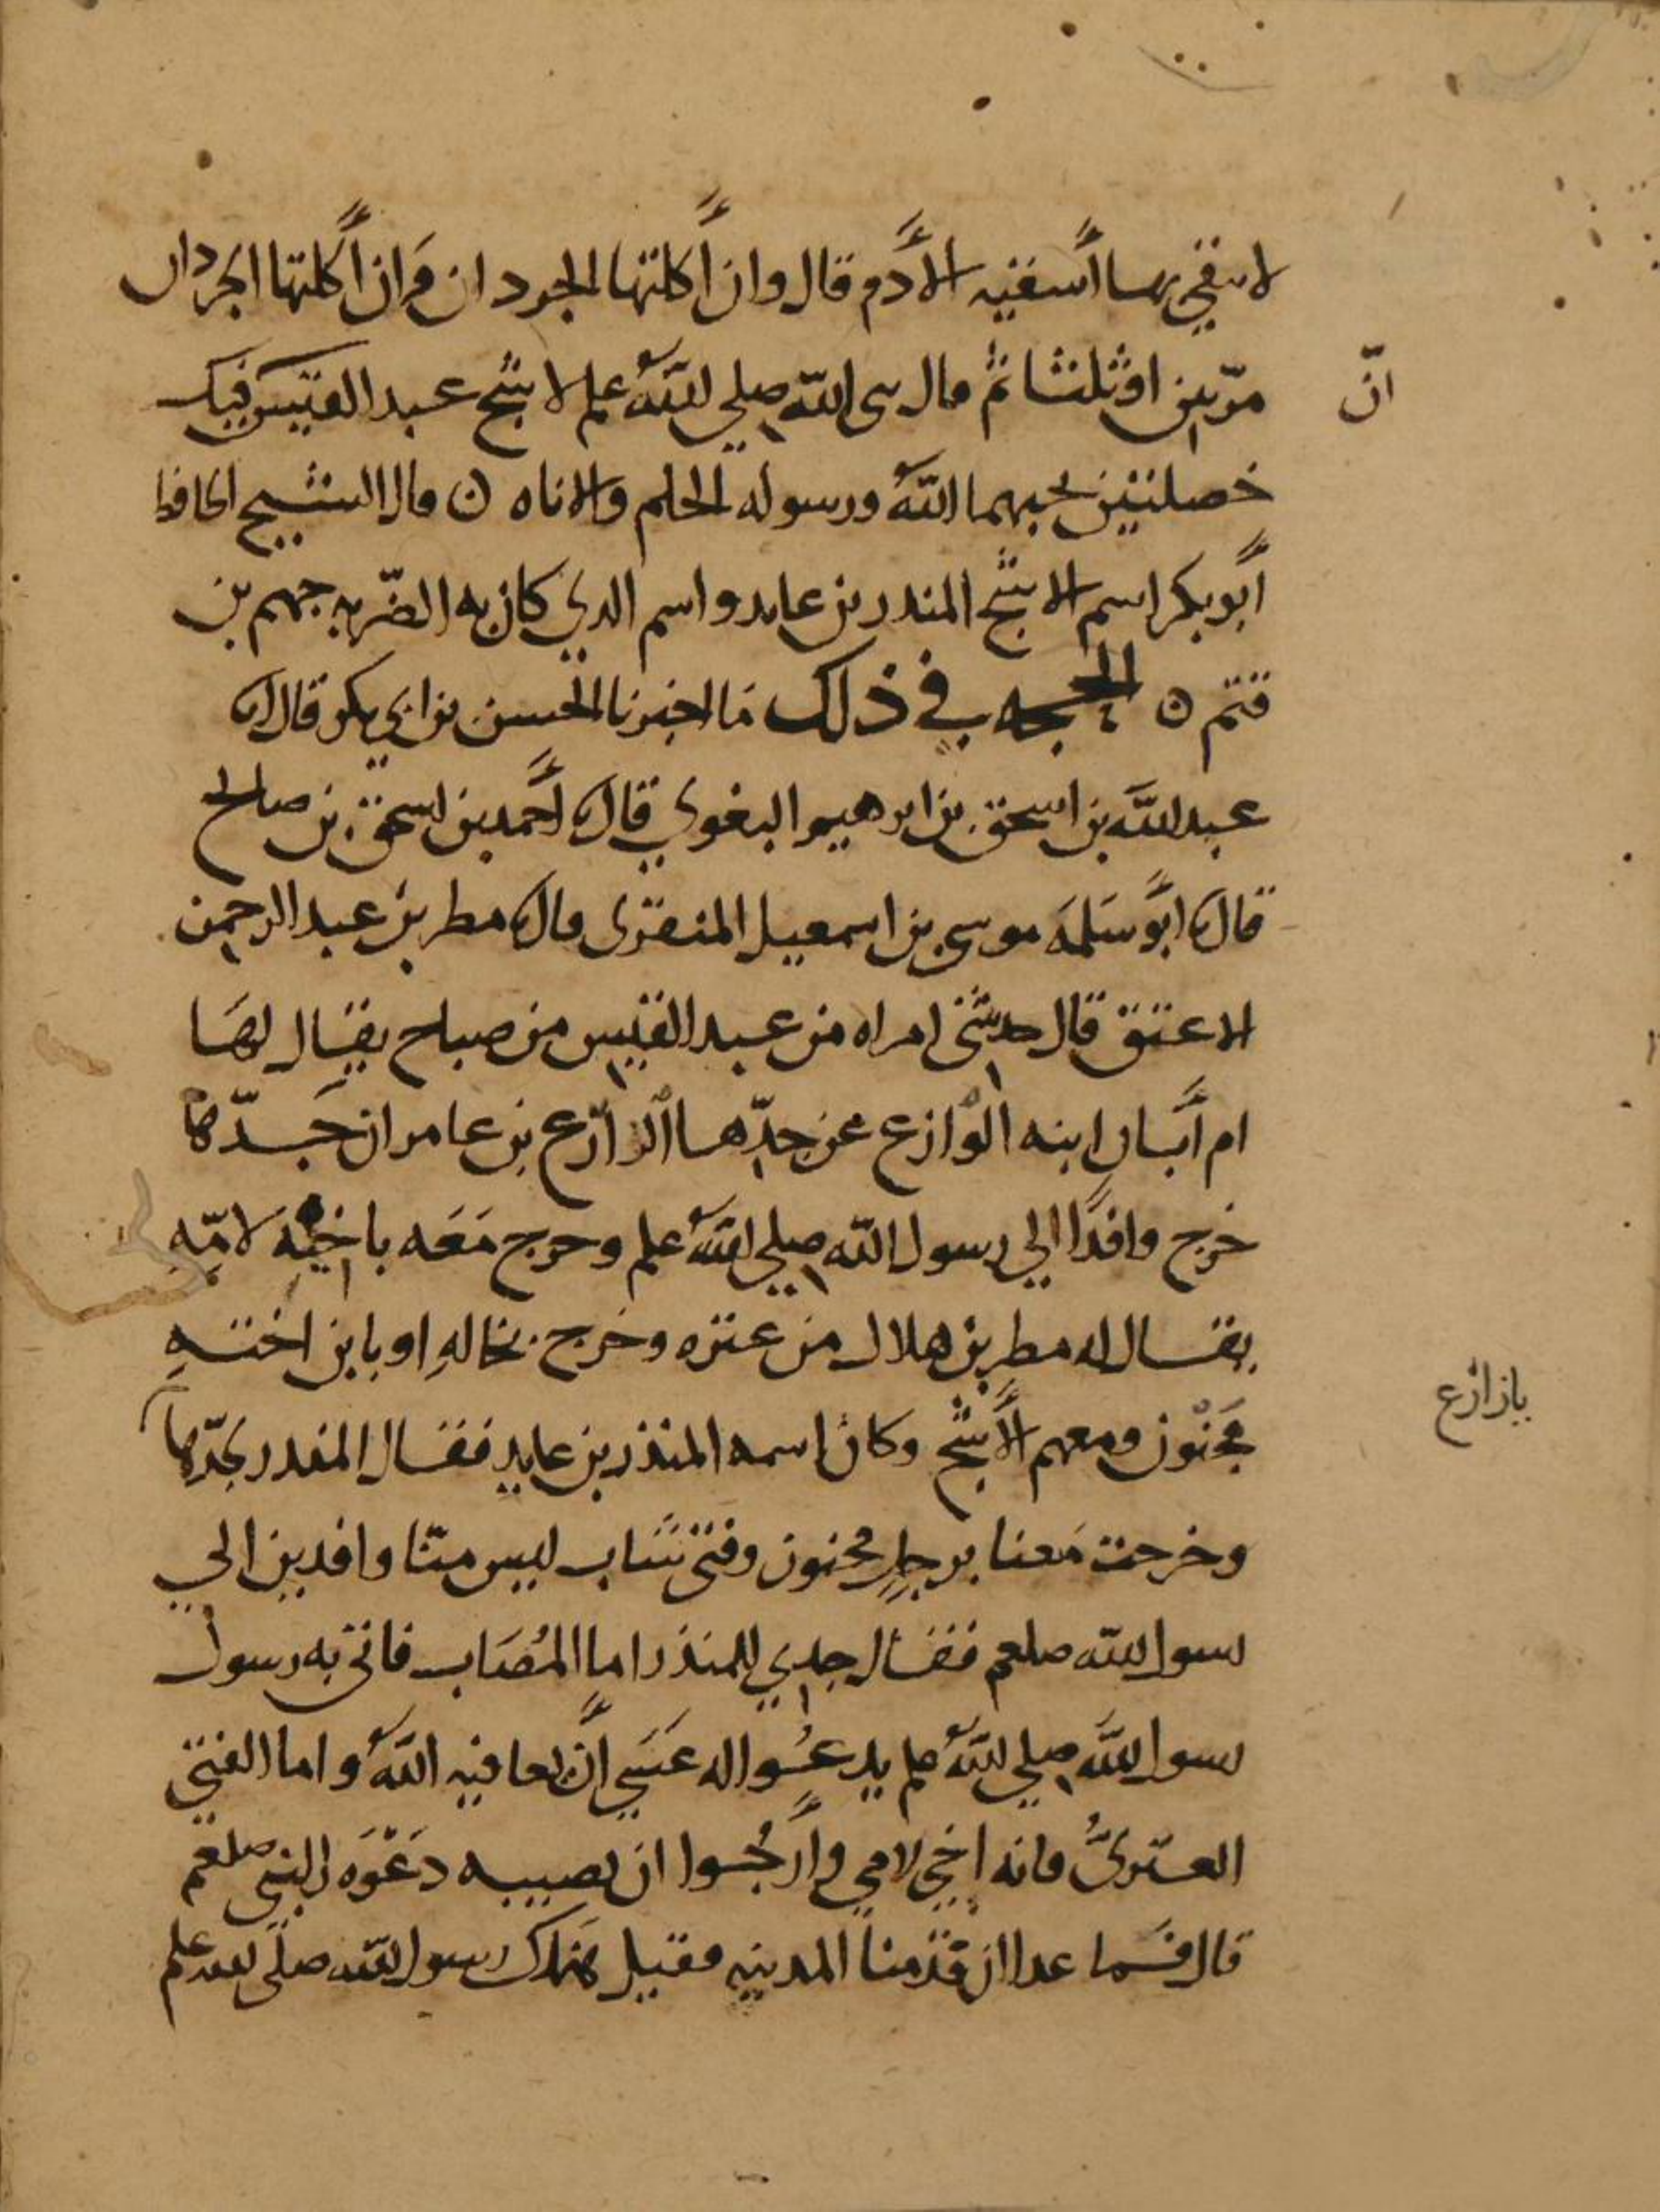 لا تبقي بها أسقيه الأدم قال وان أكلتها الجردان وان أكلتها الجردان
مرّتين او ثلثا ثم قال نبي الله صلى الله علم لاشج عبد القيس فيك
ان
خصلتين يحبهما الله ورسوله الحلم والاناه ن قال الشيخ الحافظ
أبو بكر اسم الاشج المندر بن عايد واسم الدي كان به الضربه جهم بن
قثم ن الحجه في ذلك ما اخبرنا الحسن بن ابي بكر قال انا
عبد الله بن اسحق بن ابرهيم البغوي قال نا أحمد بن اسحق بن صالح
قال نا ابو سلمه موسى بن اسمعيل المنقرى قال نا مطر بن عبد الرحمن
الاعنق قال حدثتني امراه من عبد القيس من صباح يقال لها
ام أبان ابنه الوازع عن جدّها الزارع بن عامر ان جدّها
خرج وافدًا الي رسول الله صلي الله علم وخرج معه باخيه لامّه
يقال له مطر بن هلال من عنزه وخرج بخاله او بابن اخته
بازارع
مجنون ومعهم الأشج وكان اسمه المنذر بن عايد فقال المندر لجدّها
وخرجت معنا برجل مجنون وفتى شاب ليس منّا وافدين الي
رسول الله صلعم فقال جدي للمنذر اما المصاب فاتى به رسول
رسول الله صلي الله علم يدعوا له عسي أن يعافيه الله واما الفتي
العنزىّ فانه اخي لامي وأرجوا ان يصيبه دعوه النبي صلعم
قال فما عدا ان قدمنا المدينه فقيل هذاك رسول الله صلى الله علم